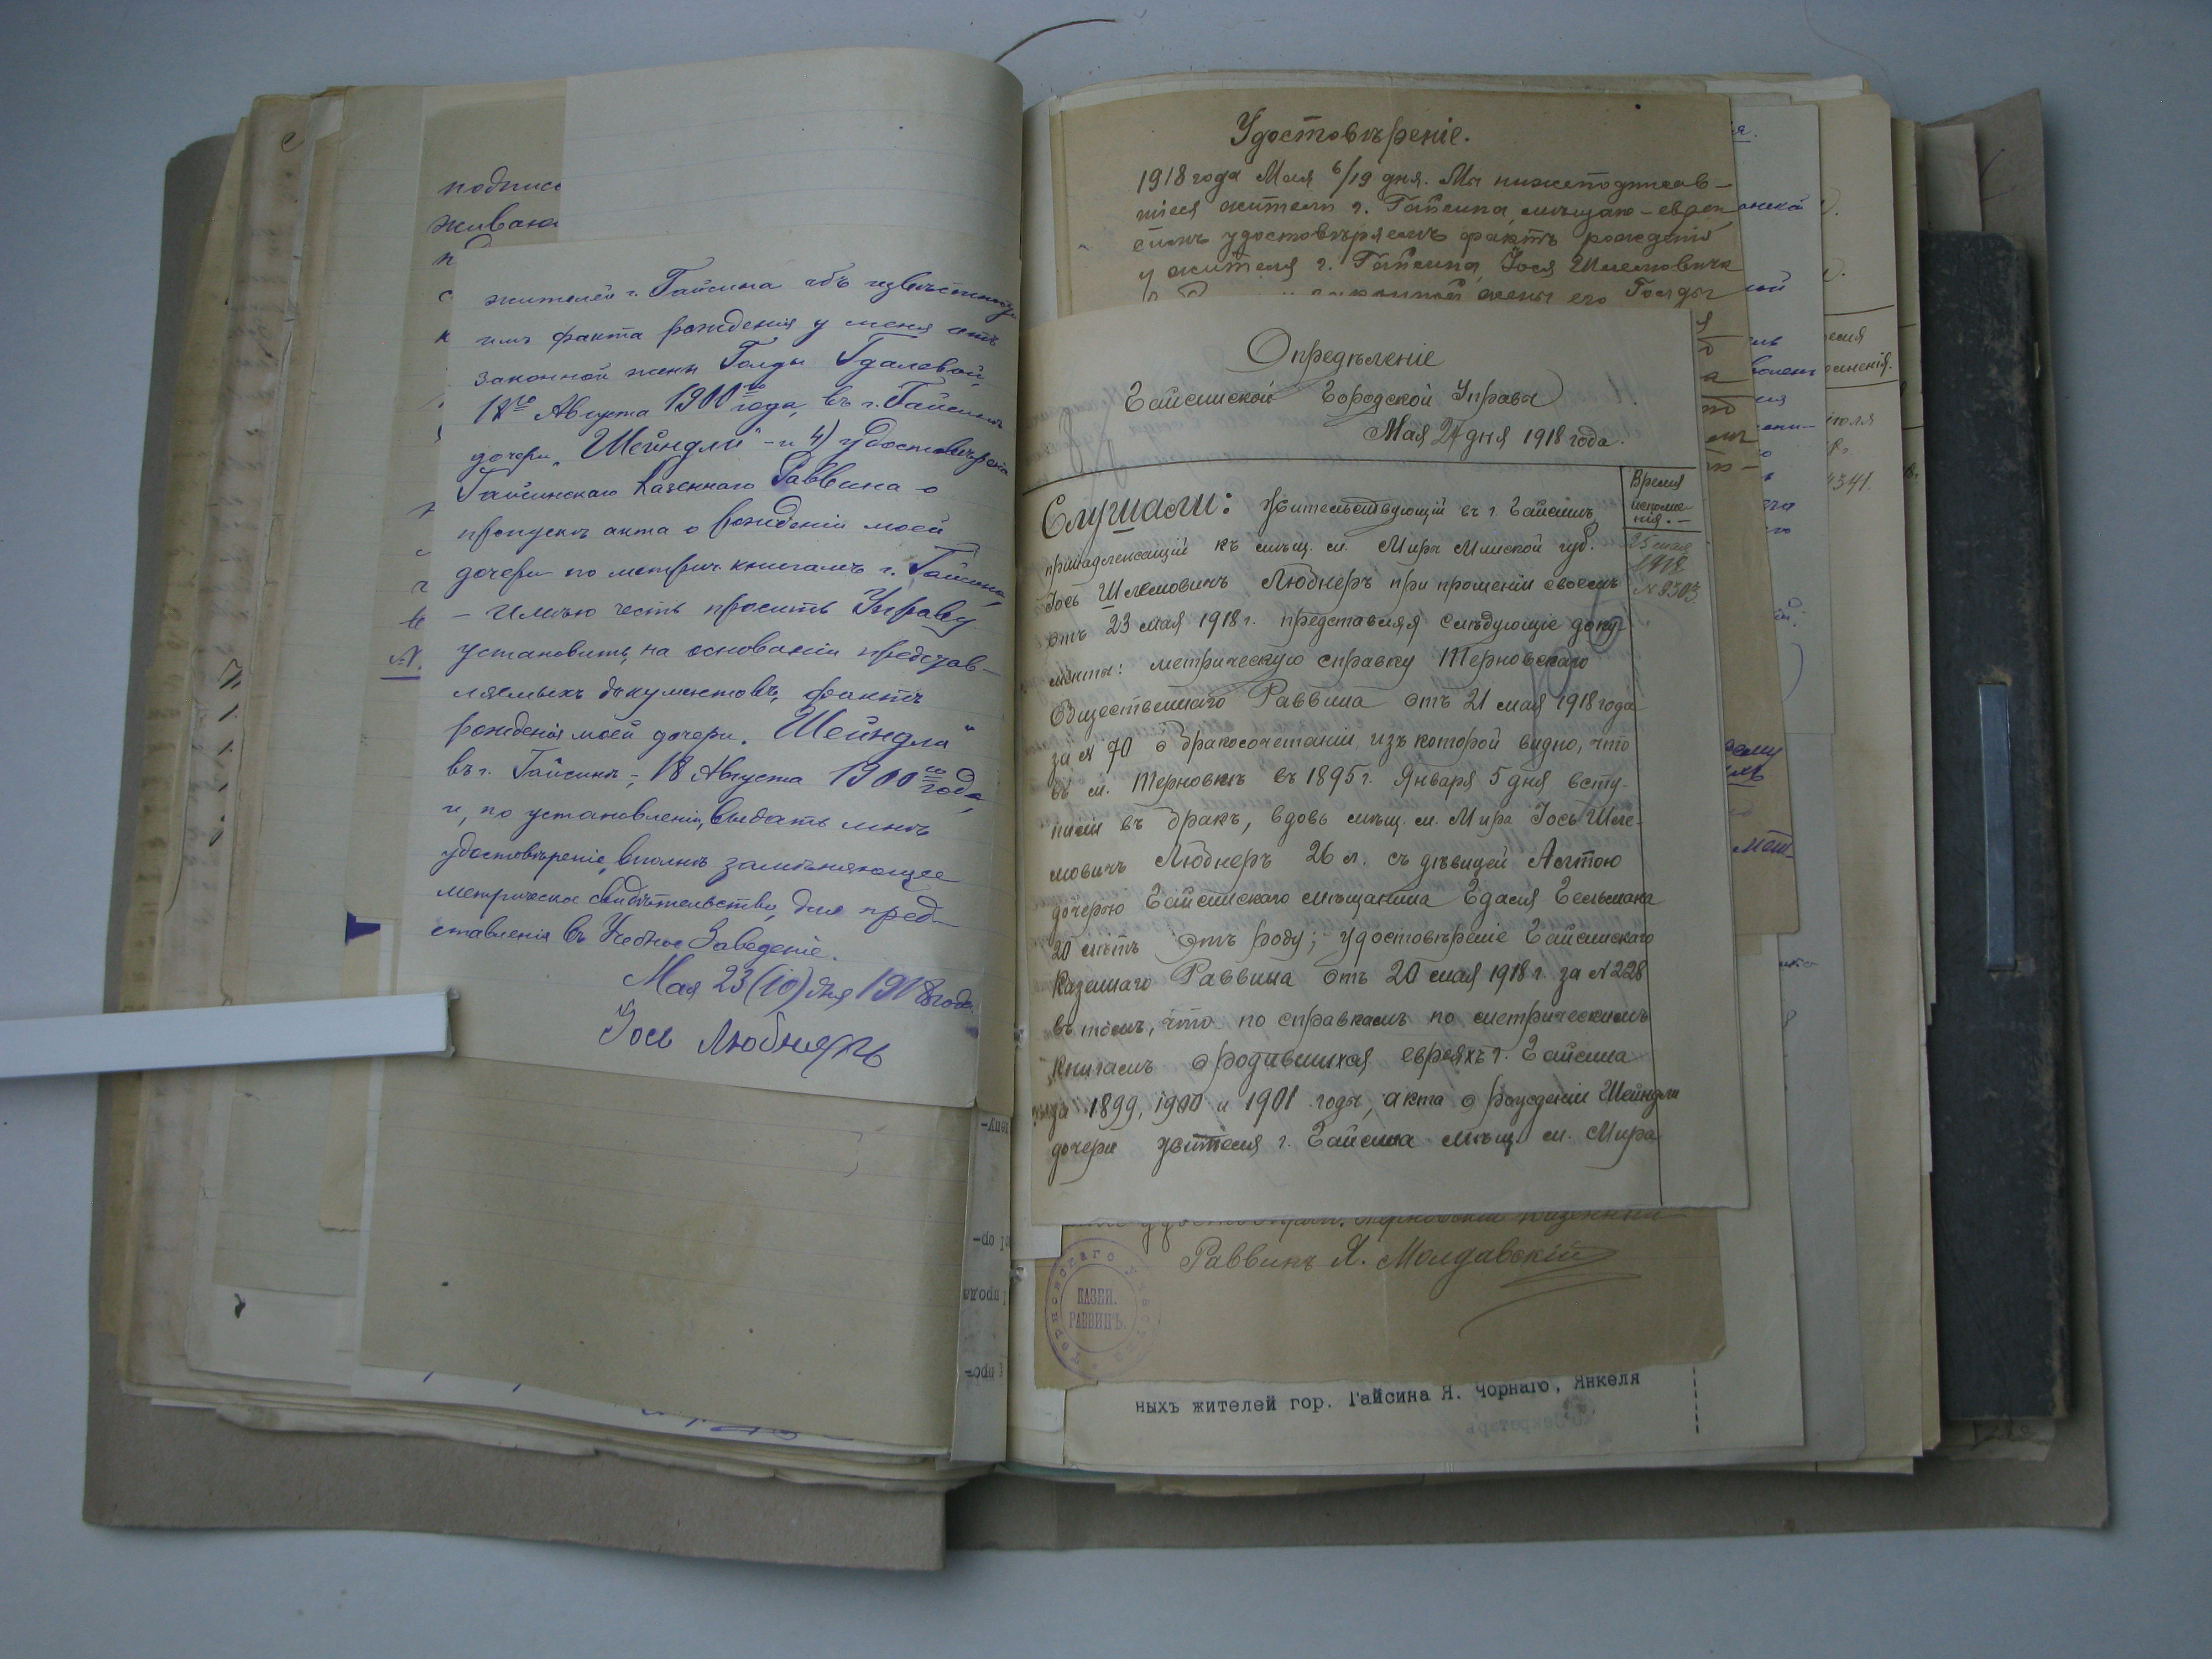 подпис
живаю
жителей г. Гайсина объ извѣстномъ
имъ факта рожденія у меня отъ
законной жены Голды Гдалевой,
18го Августа 1900го года, въ г. Гайсинѣ
дочери „Шейндли" - и 4) удостовѣренія
Гайсинскаго Казеннаго Раввина о
пропускѣ акта о рожденіи моей
дочери по метрич. книгамъ г. Гайсина,
- имѣю честь просить Управу
установить, на основаніи представ-
ляемыхъ документовъ, фактъ
рожденія моей дочери „Шейндля"
въ г. Гайсинѣ, 18 Августа 1900го года,
и, по установленіи, выдать мнѣ
удостовѣреніе, вполнѣ замѣняющее
метрическое свидѣтельство, для пред-
ставленія въ Учебное Заведеніе.
Мая 23 (10) дня 1918 года.
Іось Любнеръ
Удостовѣреніе.
1918 года Мая 6/19 дня. Мы нижеподписав-
шіеся жители г. Гайсина, мѣщане-евреи
симъ удостовѣряемъ фактъ рожденія
у жителя г. Гайсина, Іося Шлемовича
законной жены его Голды
Опредѣленіе
Гайсинской Городской Управы
Мая 24 дня 1918 года.
Время
исполне-
нія. -
25 мая
1918
№ 2303
Слушали: Жительствующій въ г. Гайсинѣ,
принадлежащій къ мѣщ. м. Мира Минской губ.
Іось Шлемовичъ Любнеръ при прошеніи своемъ
отъ 23 мая 1918 г. представляя слѣдующіе доку-
менты: метрическую справку Терновскаго
Общественнаго Раввина отъ 21 мая 1918 года
за № 70 о бракосочетаніи, изъ которой видно, что
въ м. Терновкѣ въ 1895 г. Января 5 дня всту-
пили въ бракъ, вдовъ мѣщ. м. Мира Іось Шле-
мовичъ Любнеръ 26 л. съ дѣвицей
дочерью Гайсинскаго мѣщанина Гдаля Гельмана
20 лѣтъ отъ роду; удостовѣреніе Гайсинскаго
Казеннаго Раввина отъ 20 мая 1918 г. за № 228
въ томъ, что по справкамъ по метрическимъ
книгамъ о родившихся евреяхъ г. Гайсина
за 1899, 1900 и 1901 годы, акта о рожденіи Шейндли
дочери жителя г. Гайсина мѣщ. м. Мира
Раввинъ Я. Молдавскій
КАЗЕН.
РАВВИНЪ.
ныхъ жителей гор. Гайсина Я. Чорнаго, Янкеля